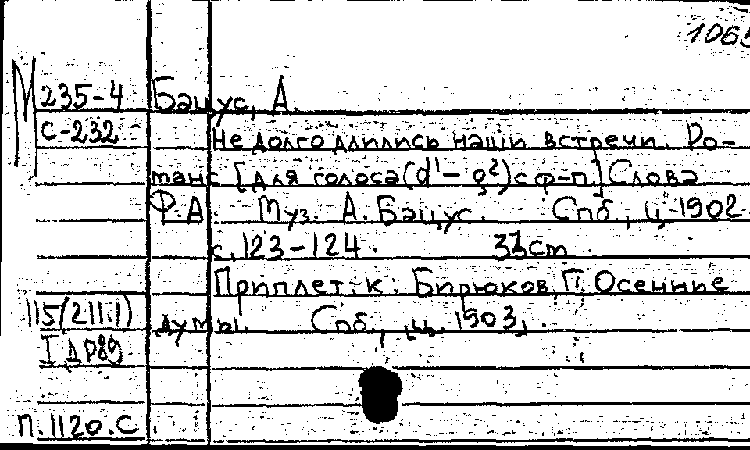 1065
М 235-4 Бацус, А.
С-232 Недолго длились наши встречи. Ро-
манс [для голоса (d¹ - g²) с ф-п.] Слова
Р.А. Муз. А. Бацус. Спб, ц. 1902
с. 123-124. 33 cm.
Приплет. к: Бирюков, П. Осенние
115(211.1) думы. Спб., ц. 1903,.
I др89
п.1120.с